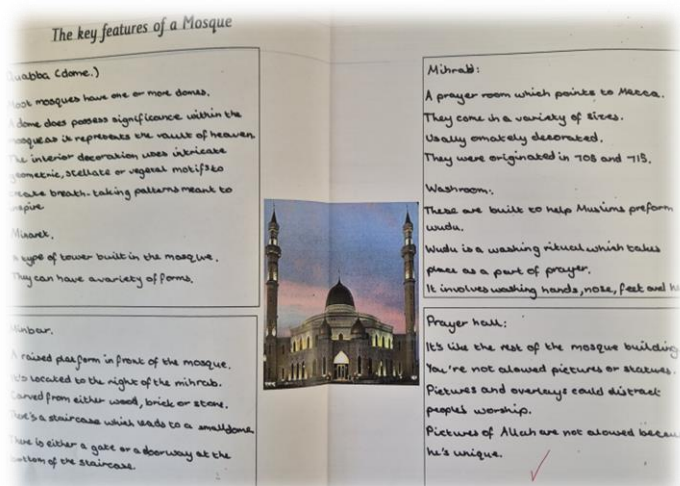 The key features of a Mosque
Quabba (dome.)
Most mosques have one or more domes.
A dome does possess significance within the
mosque as it represents the vault of heaven.
The interior decoration uses intricate
geometric, stellate or vegetal motifs to
create breath-taking patterns meant to
inspire
Minaret.
A type of tower built in the mosque.
They can have a variety of forms.
Minbar.
A raised platform in front of the mosque.
It's located to the right of the mihrab.
Carved from either wood, brick or stone.
There's a staircase which leads to a small dome
There is either a gate or a doorway at the
bottom of the staircase
Mihrab:
A prayer room which points to Mecca.
They come in a variety of sizes.
Usally ornately decorated.
They were originated in 708 and 715.
Washroom:
These are built to help Muslims preform
wudu.
Wudu is a washing ritual which takes
place as a part of prayer.
It involves washing hands, nose, feet and
Prayer hall:
It's like the rest of the mosque building
You're not allowed pictures or statues.
Pictures and overlays could distract
people's worship.
Pictures of Allah are not alowed
he's unique.